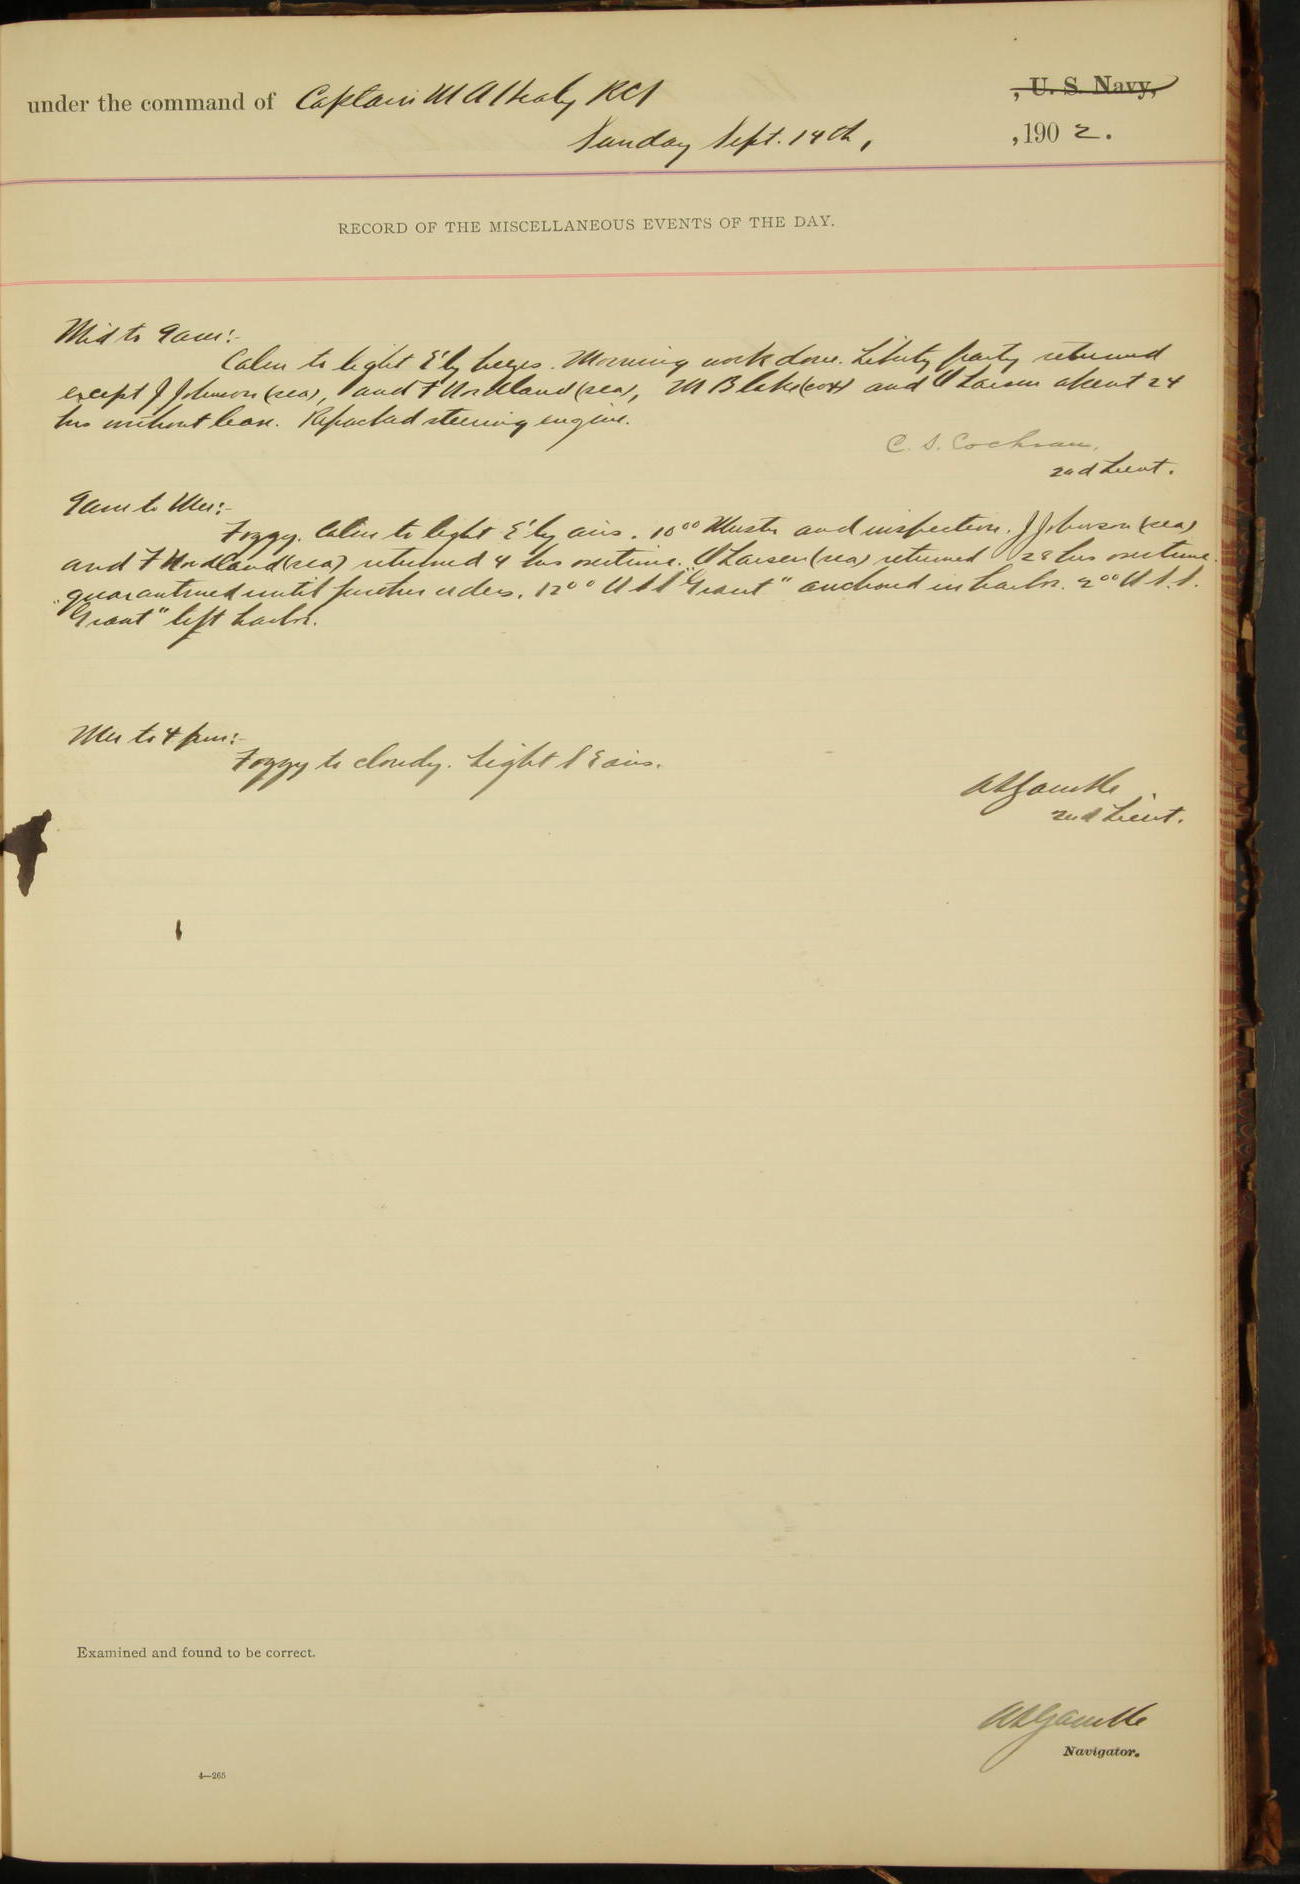 under the command of Captain M A Healy RCS , U. S. Navy,
Sunday Sept. 14th, , 190 2.
RECORD OF THE MISCELLANEOUS EVENTS OF THE DAY.
Mid to 9am:-
Calm to light E'ly breezes. Morning work done. Liberty party returned
except J Johnson (sea), and F Nordland (sea), M Blake (cox) and Larsen absent 24
hrs without leave. Repacked steering engine.
C. S. Cochran,
2nd Lieut.
9am to Mer:-
Foggy. Calm to light E'ly airs. 10⁰⁰ Muster and inspection. J Johnson (sea)
and F Nordland (sea) returned 4 hrs overtime. Larsen (sea) returned 28 hrs overtime.
quarantined until further orders. 12⁰⁰ "Grant" anchored in harbor. 2⁰⁰
"Grant" left harbor.
Mer to 4 pm:-
Foggy to cloudy. Light SE airs.
Gamble
2nd Lieut.
Examined and found to be correct.
Gamble
Navigator.
4—265